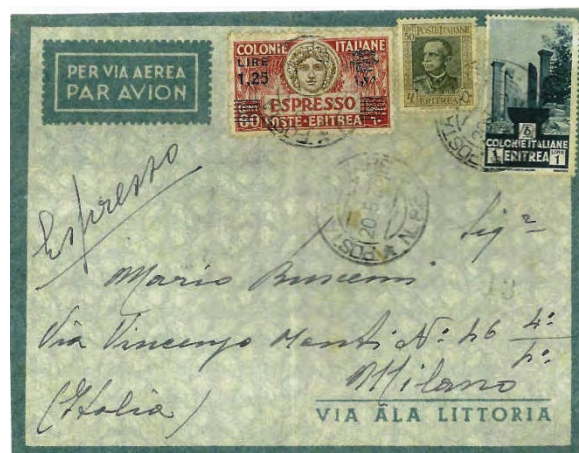 PER VIA AEREA
PAR AVION
COLONIE ITALIANE
LIRE
1.25
ESPRESSO
60
POSTE ERITREA
POSTE ITALIANE
50
ERITREA
COLONIE ITALIANE
1 ERITREA LIRE 1
POSTA
Espresso
Sigr
Mario Buscemi
Via Vincenzo Monti No: 46 4o
Milano
(Italia)
VIA ALA LITTORIA